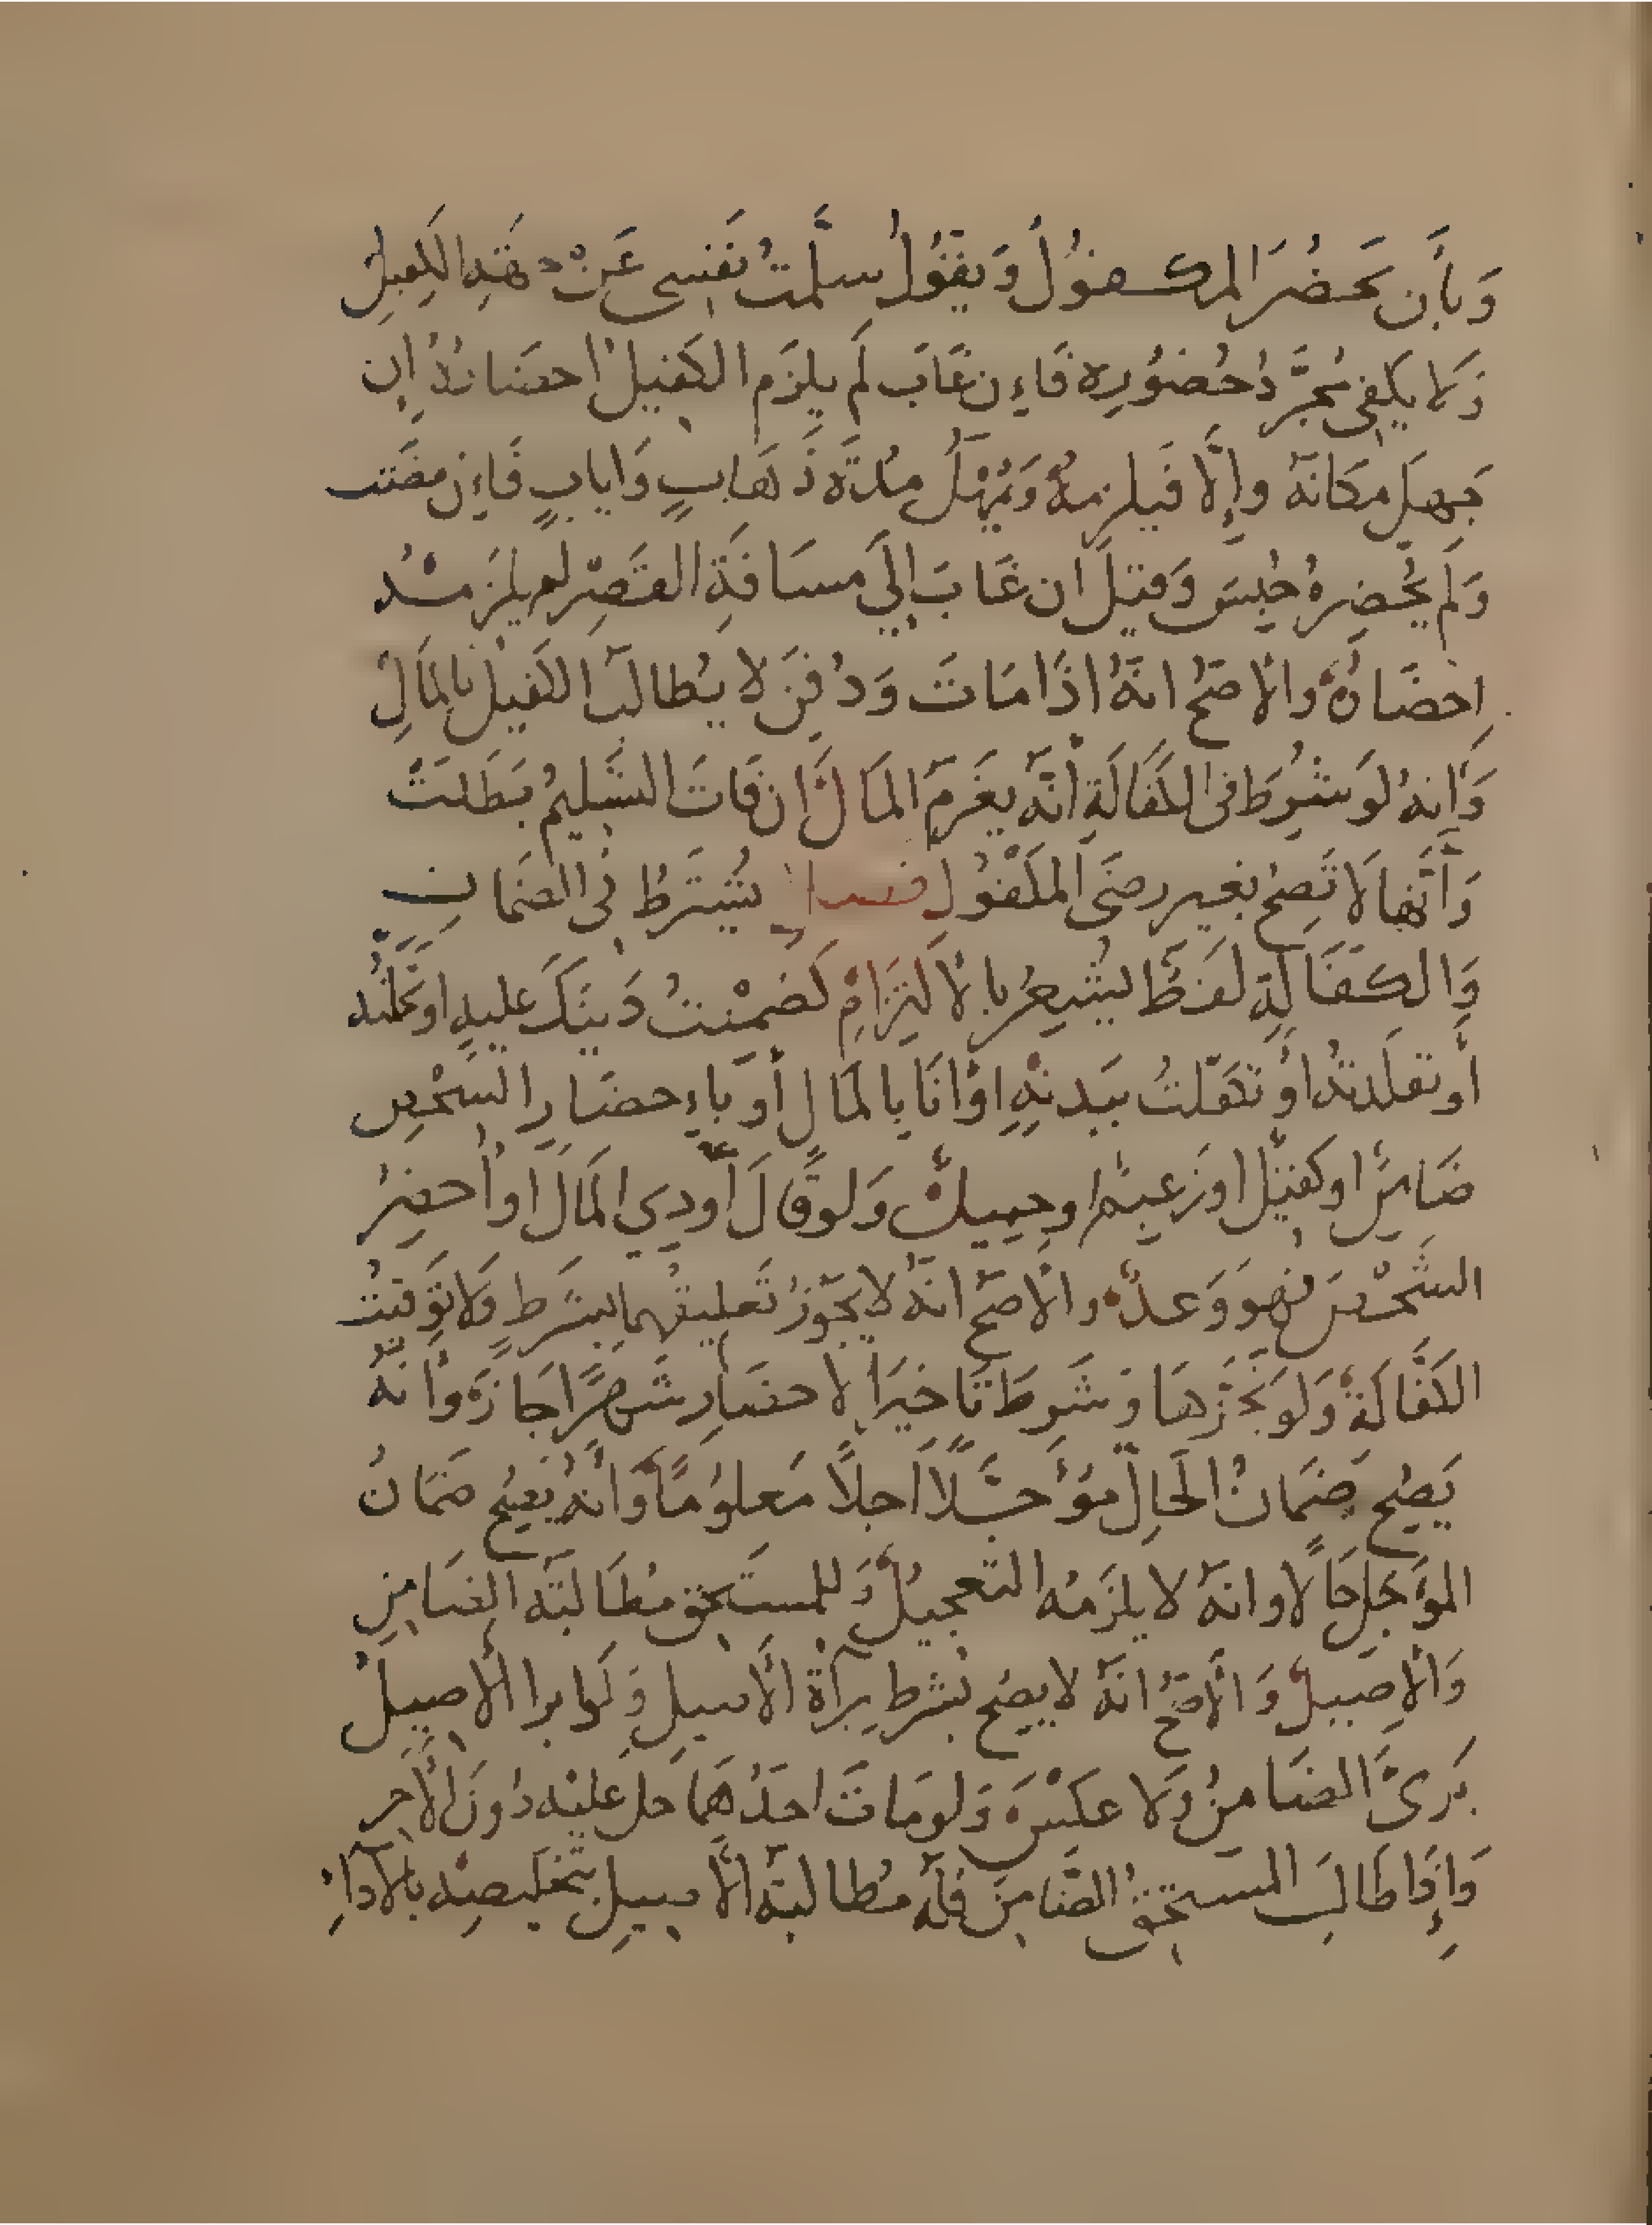 وَبأَن يَحضُرَ المكفولُ وَيقُولُ سلَّمتُ نفسي عَنْ جهَةِ الكفيلِ
وَلا يكفي مُجرَّدُ حُضوُرِه فَاءِن غَابَ لَم يلزَمِ الكفيلُ احضَارُهُ إِن
جَهِلَ مكَانَهُ وإِلَّا فيلزمهُ وَيُمْهَلُ مدَّةَ ذَهَابٍ وَايابٍ فَاءِن مضَت
وَلَم يُحْضِرهُ حُبِسَ وَقيلَ ان غَابَ إِلَي مسَافَةِ القَصْرِ لم يلزَمْهُ
احضَارُهُ والأصَحُّ انهُ اذَا مَاتَ وَدُفِنَ لا يُطالَبُ الكفيلُ بالمَالِ
وَانهُ لَو شُرِطَ في الكفَالَةِ أنهُ يغرَمُ المَالَ ان فَاتَ التسَليمُ بَطَلَتْ
وَأنَّها لَا تَصِحُ بغير رضَى المكفُولِ فصل يُشتَرطُ في الضمَانِ
وَالكفَالَةِ لفظٌ يُشعِرُ بالألتِزَامِ كَضَمْنتُ دَينَكَ عليهِ او تحَمَّلتُه
أو تقلَّدتهُ اوْ تكفَّلتُ ببَدنهِ اوْ انَا بالمَالِ أو بَاءِحضَارِ الشخْصِ
ضَامنٌ او كفيلٌ او زَعيمٌ او حميلٌ وَلو قَالَ أُودي المَالَ او أُحضِرُ
الشَّخْصَ فهوَ وَعدٌ والأصَحُّ انهُ لا يجَوُزُ تَعليقُهما بشَرطٍ وَلا توقيتُ
الكفَالَةِ وَلو نجَّزَهَا وَشَرطَ تَأخيرَ الاحضَارِ شَهرًا جَازَ وأنهُ
يَصِحُ ضَمَانُ الحَالِّ مؤَجَّلًا أجلًا مَعلوُمًا وَأنهُ يَصِحُ ضمَانُ
المؤَجَّلِ حَالًا وانهُ لا يلزَمُه التعجيلُ وَللمستَحقِ مُطَالبَةُ الضَامِنِ
وَالأصيلِ وَالأصَحُّ انهُ لا يصِحُ بشرط برَأةِ الأصيلِ وَلَوا برا الأصيلَ
بَرىَّ الضَامنُ وَلا عكسَ وَلو مَاتَ احَدُهمَا حل عَليْه دُونَ الأخَرِ
وَإِذَا طَالبَ المستحقُ الضَّامِنَ فلَهُ مُطالبَةُ الأصيلِ بتخليصِه بالأدَاءِ